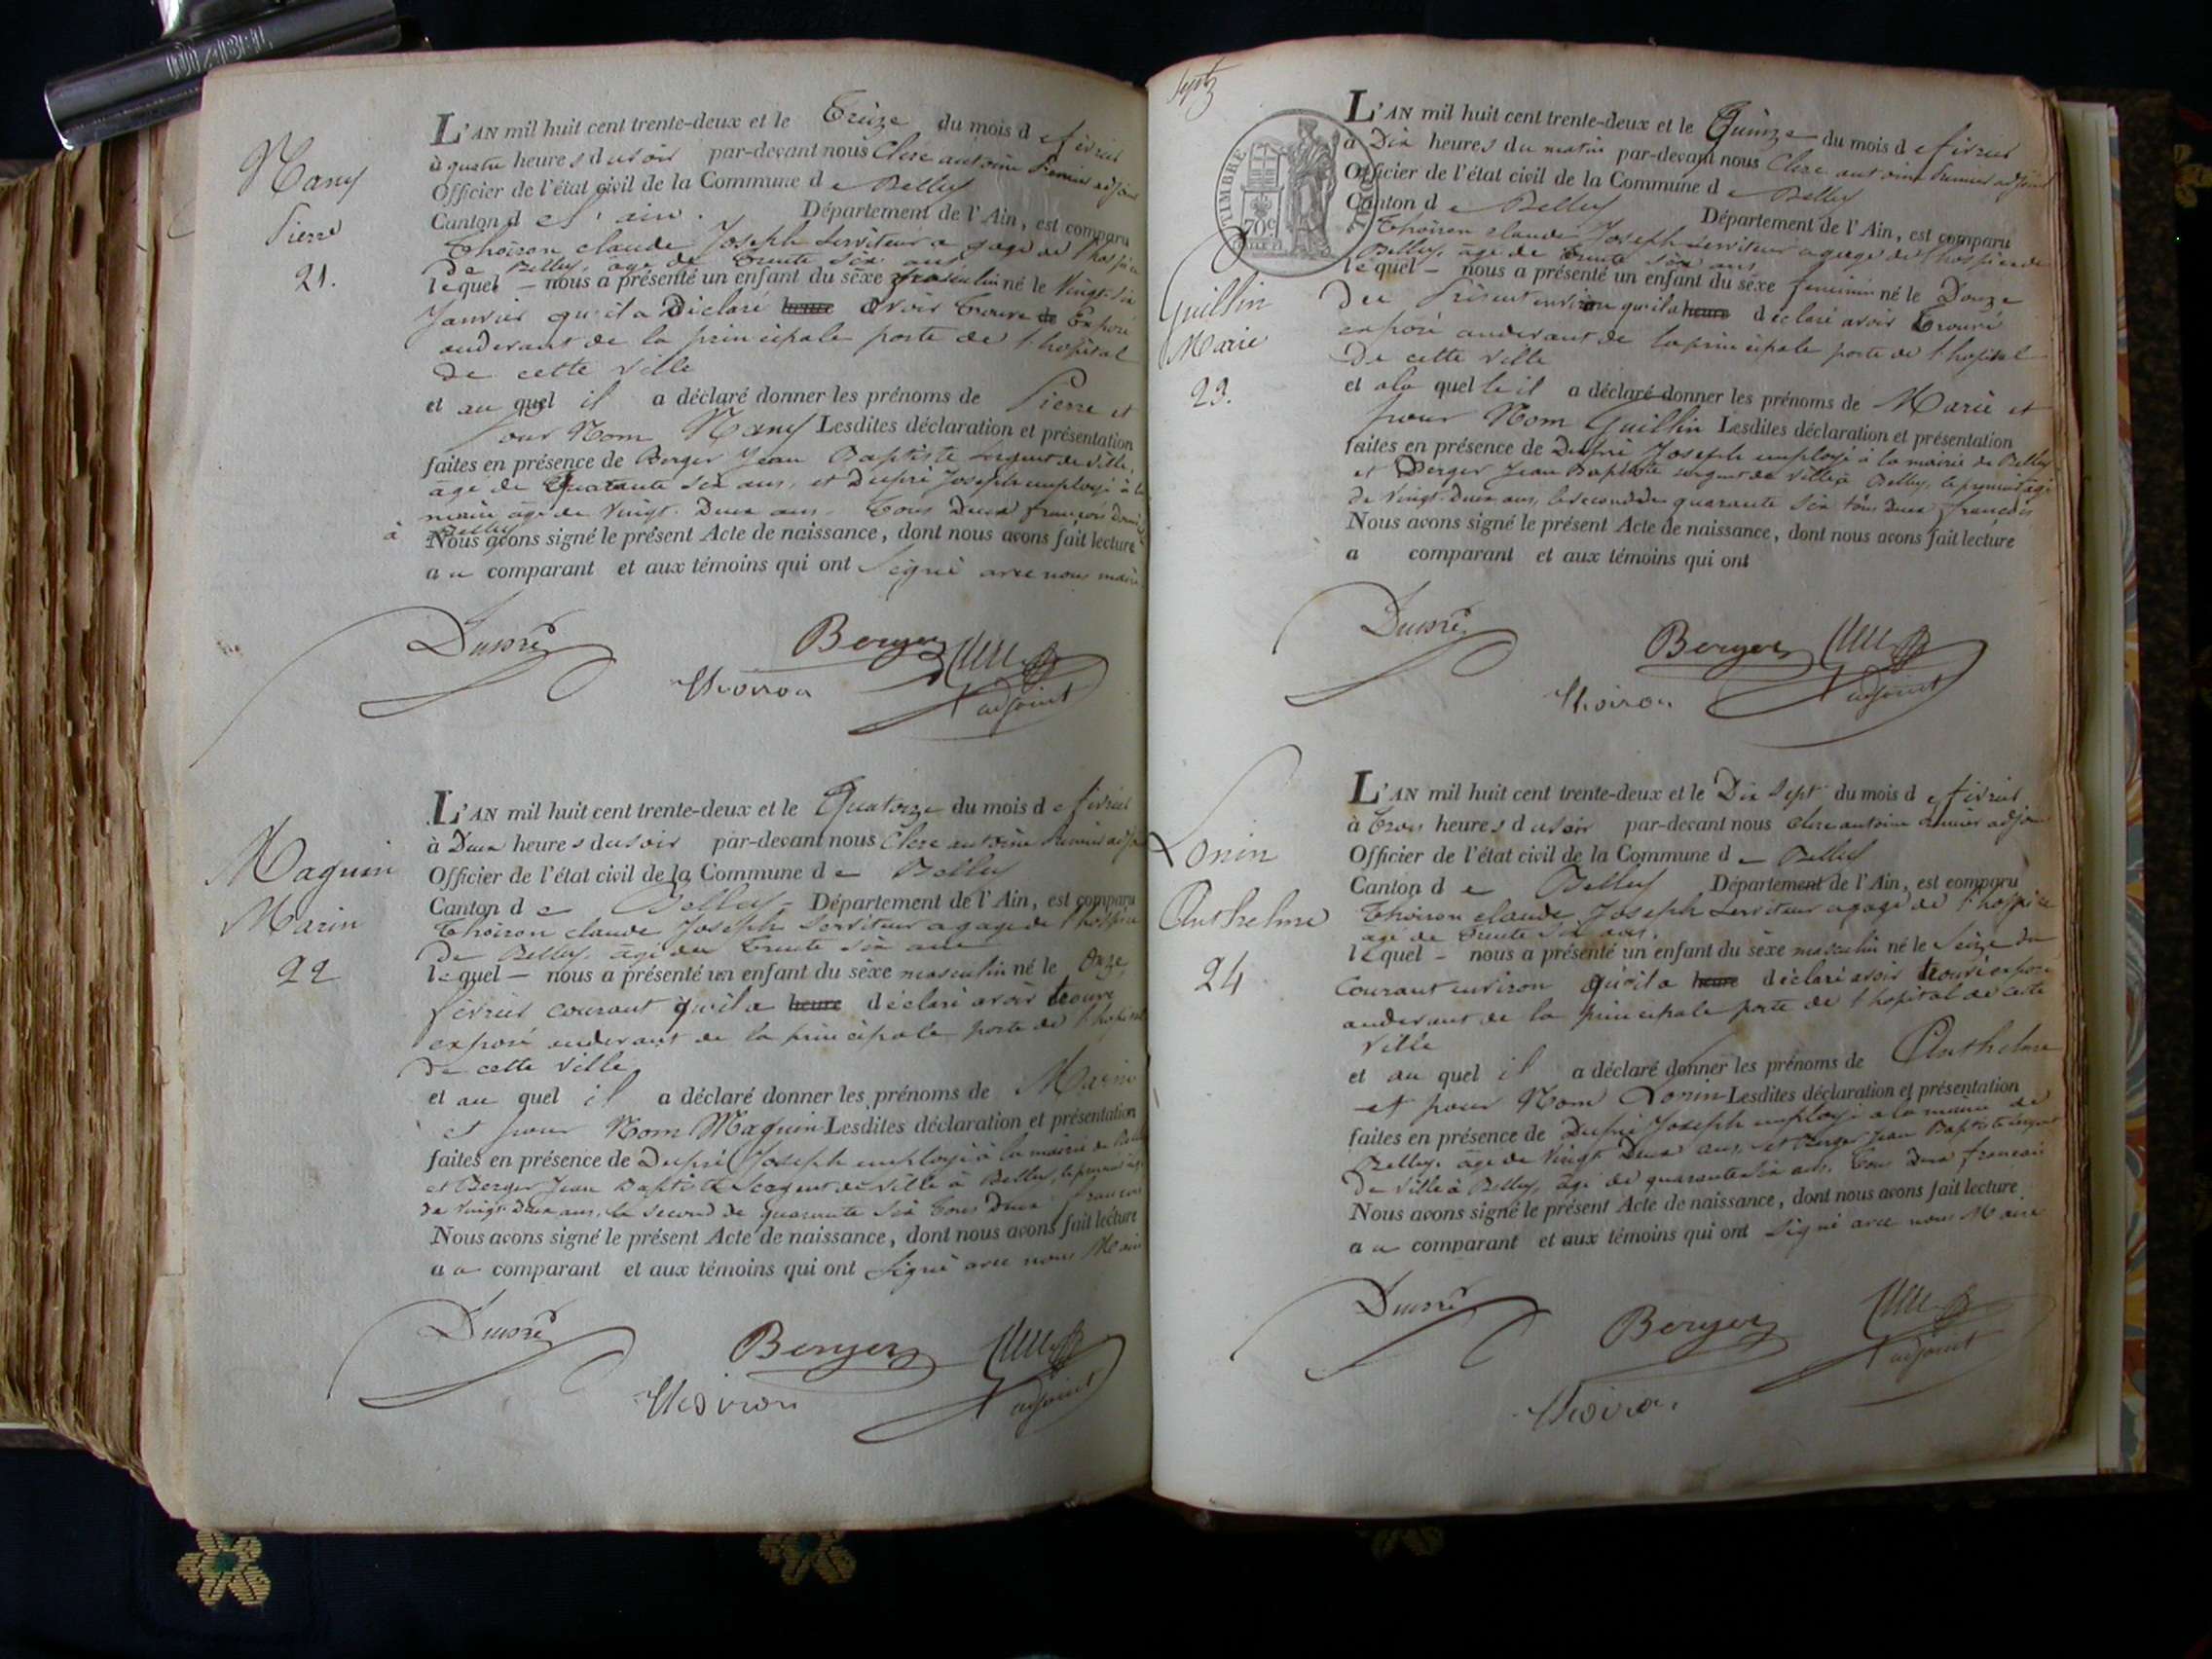 DIABEL
Nany
Pierre
21.
L'AN mil huit cent trente-deux et le Treize du mois de février
à quatre heures du soir par-devant nous Clerc antoine Premier adjoint
Officier de l'état civil de la Commune de Belley
Canton de l'ain. Département de l'Ain, est comparu
Thoiron claude Joseph Serviteur a gage de l'hospice
de Belley, âgé de Trente six ans
lequel — nous a présenté un enfant du sèxe masculin né le Vingt-six
Janvier qu'il a Déclaré heure avoir trouvé de Exposé
audevant de la principale porte de l'hopital
de cette ville
et au quel il a déclaré donner les prénoms de Pierre et
pour Nom Nany Lesdites déclaration et présentation
faites en présence de Berger Jean Baptiste Sergent de ville,
âgé de Quarante six ans, et Dupré Joseph employé à la
mairie âgé de Vingt-Deux ans. Tous Deux françois Domiciliés
à Belley
Nous avons signé le présent Acte de naissance, dont nous avons fait lecture
au comparant et aux témoins qui ont Signé avec nous maire.
Dupré
Berger
Clerc
Thoiron
adjoint
Maguin
Marin
22
L'AN mil huit cent trente-deux et le Quatorze du mois de février
à Deux heures du soir par-devant nous Clerc antoine Premier adjoint
Officier de l'état civil de la Commune de Belley
Canton de Belley — Département de l'Ain, est comparu
Thoiron claude Joseph Serviteur a gage de l'hospice
de Belley, âgé de Trente six ans
lequel — nous a présenté un enfant du sèxe masculin né le Onze
février courant qu'il a heure déclaré avoir trouvé
exposé audevant de la principale porte de l'hopital
de cette ville
et au quel il a déclaré donner les prénoms de Marin
et pour Nom Maguin Lesdites déclaration et présentation
faites en présence de Dupré Joseph employé à la mairie de Belley
et Berger Jean Baptiste Sergent de ville à Belley, le premier âgé
de Vingt-Deux ans, le second de quarante six tous Deux françois
Nous avons signé le présent Acte de naissance, dont nous avons fait lecture
au comparant et aux témoins qui ont Signé avec nous Maire
Dupré
Berger
Clerc
Thoiron
adjoint
Sept
TIMBRE
70c
Guillin
Marie
23.
L'AN mil huit cent trente-deux et le Quinze du mois de février
à Dix heures du matin par-devant nous Clerc antoine Premier adjoint
Officier de l'état civil de la Commune de Belley
Canton de Belley Département de l'Ain, est comparu
Thoiron claude Joseph Serviteur a gage de l'hospice de
Belley, âgé de Trente six ans
lequel — nous a présenté un enfant du sèxe feminin né le Douze
du Présent environ qu'il a heure déclaré avoir trouvé
exposé audevant de la principale porte de l'hopital
de cette ville
et a la quelle il a déclaré donner les prénoms de Marie et
pour Nom Guillin Lesdites déclaration et présentation
faites en présence de Dupré Joseph employé à la mairie de Belley
et Berger Jean Baptiste sergent de ville à Belley, le premier âgé
de Vingt-Deux ans, le second de quarante six tous Deux françois
Nous avons signé le présent Acte de naissance, dont nous avons fait lecture
a comparant et aux témoins qui ont
Dupré
Berger
Clerc
Thoiron
adjoint
Lonin
Anthelme
24
L'AN mil huit cent trente-deux et le Dix Sept du mois de février
à trois heures du soir par-devant nous Clerc antoine Premier adjoint
Officier de l'état civil de la Commune de Belley
Canton de Belley Département de l'Ain, est comparu
Thoiron claude Joseph Serviteur a gage de l'hospice
âgé de Trente six ans.
lequel — nous a présenté un enfant du sèxe masculin né le Seize du
Courant environ qu'il a heure déclaré avoir trouvé exposé
audevant de la principale porte de l'hopital de cette
ville
et au quel il a déclaré donner les prénoms de Anthelme
et pour Nom Lonin Lesdites déclaration et présentation
faites en présence de Dupré Joseph employé a la mairie de
Belley, âgé de Vingt Deux ans, et Berger Jean Baptiste sergent
de ville à Belley, âgé de quarante six ans, tous Deux françois
Nous avons signé le présent Acte de naissance, dont nous avons fait lecture
au comparant et aux témoins qui ont Signé avec nous Maire
Dupré
Berger
Clerc
adjoint
Thoiron